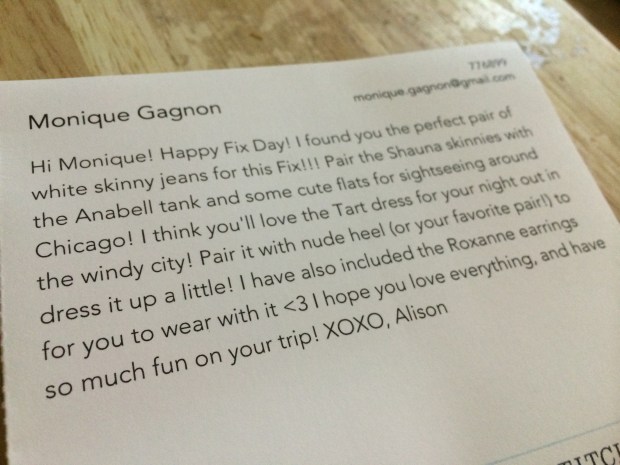 Monique Gagnon
monique.gagnon@gmail.com
Hi Monique! Happy Fix Day! I found you the perfect pair of
white skinny jeans for this Fix!!! Pair the Shauna skinnies with
the Anabell tank and some cute flats for sightseeing around
Chicago! I think you'll love the Tart dress for your night out in
the windy city! Pair it with nude heel (or your favorite pair!) to
dress it up a little! I have also included the Roxanne earrings
for you to wear with it <3 I hope you love everything, and have
so much fun on your trip! XOXO, Alison